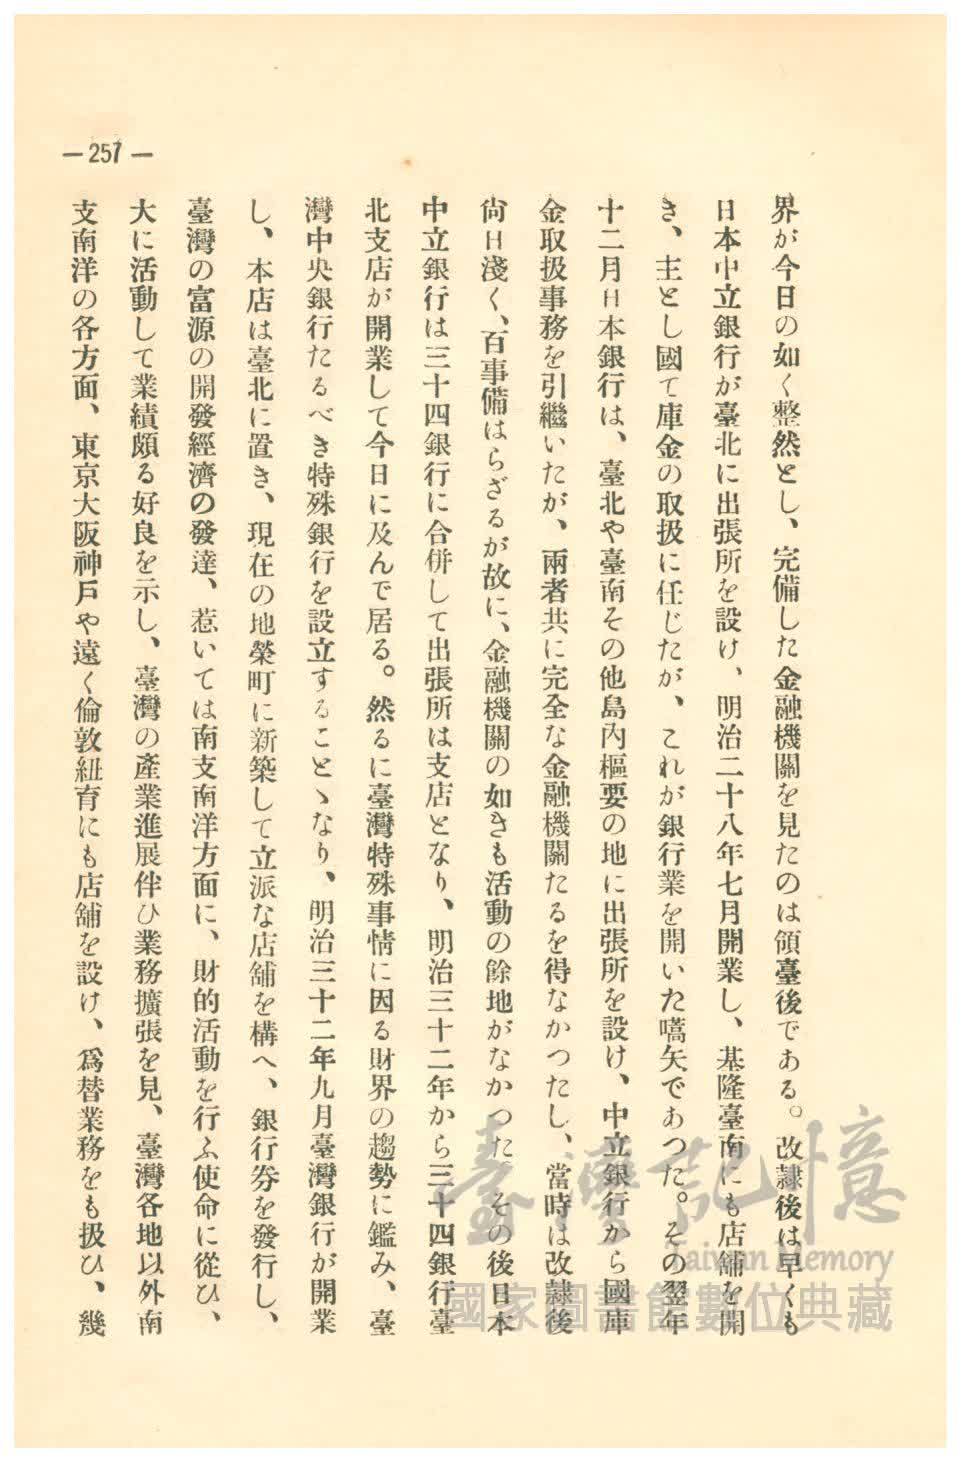 — 257 —
界が今日の如く整然とし、完備した金融機關を見たのは領臺後である。改隷後は早くも
日本中立銀行が臺北に出張所を設け、明治二十八年七月開業し、基隆臺南にも店舖を開
き、主とし國て庫金の取扱に任じたが、これが銀行業を開いた嚆矢であつた。その翌年
十二月日本銀行は、臺北や臺南その他島內樞要の地に出張所を設け、中立銀行から國庫
金取扱事務を引繼いたが、兩者共に完全な金融機關たるを得なかつたし、當時は改隷後
尙日淺く、百事備はらざるが故に、金融機關の如きも活動の餘地がなかつた。その後日本
中立銀行は三十四銀行に合併して出張所は支店となり、明治三十二年から三十四銀行臺
北支店が開業して今日に及んで居る。然るに臺灣特殊事情に因る財界の趨勢に鑑み、臺
灣中央銀行たるべき特殊銀行を設立することゝなり、明治三十二年九月臺灣銀行が開業
し、本店は臺北に置き、現在の地榮町に新築して立派な店舖を構へ、銀行券を發行し、
臺灣の富源の開發經濟の發達、惹いては南支南洋方面に、財的活動を行ふ使命に從ひ、
大に活動して業績頗る好良を示し、臺灣の產業進展伴ひ業務擴張を見、臺灣各地以外南
支南洋の各方面、東京大阪神戶や遠く倫敦紐育にも店舖を設け、爲替業務をも扱ひ、幾
臺灣記憶
Taiwan Memory
國家圖書館數位典藏